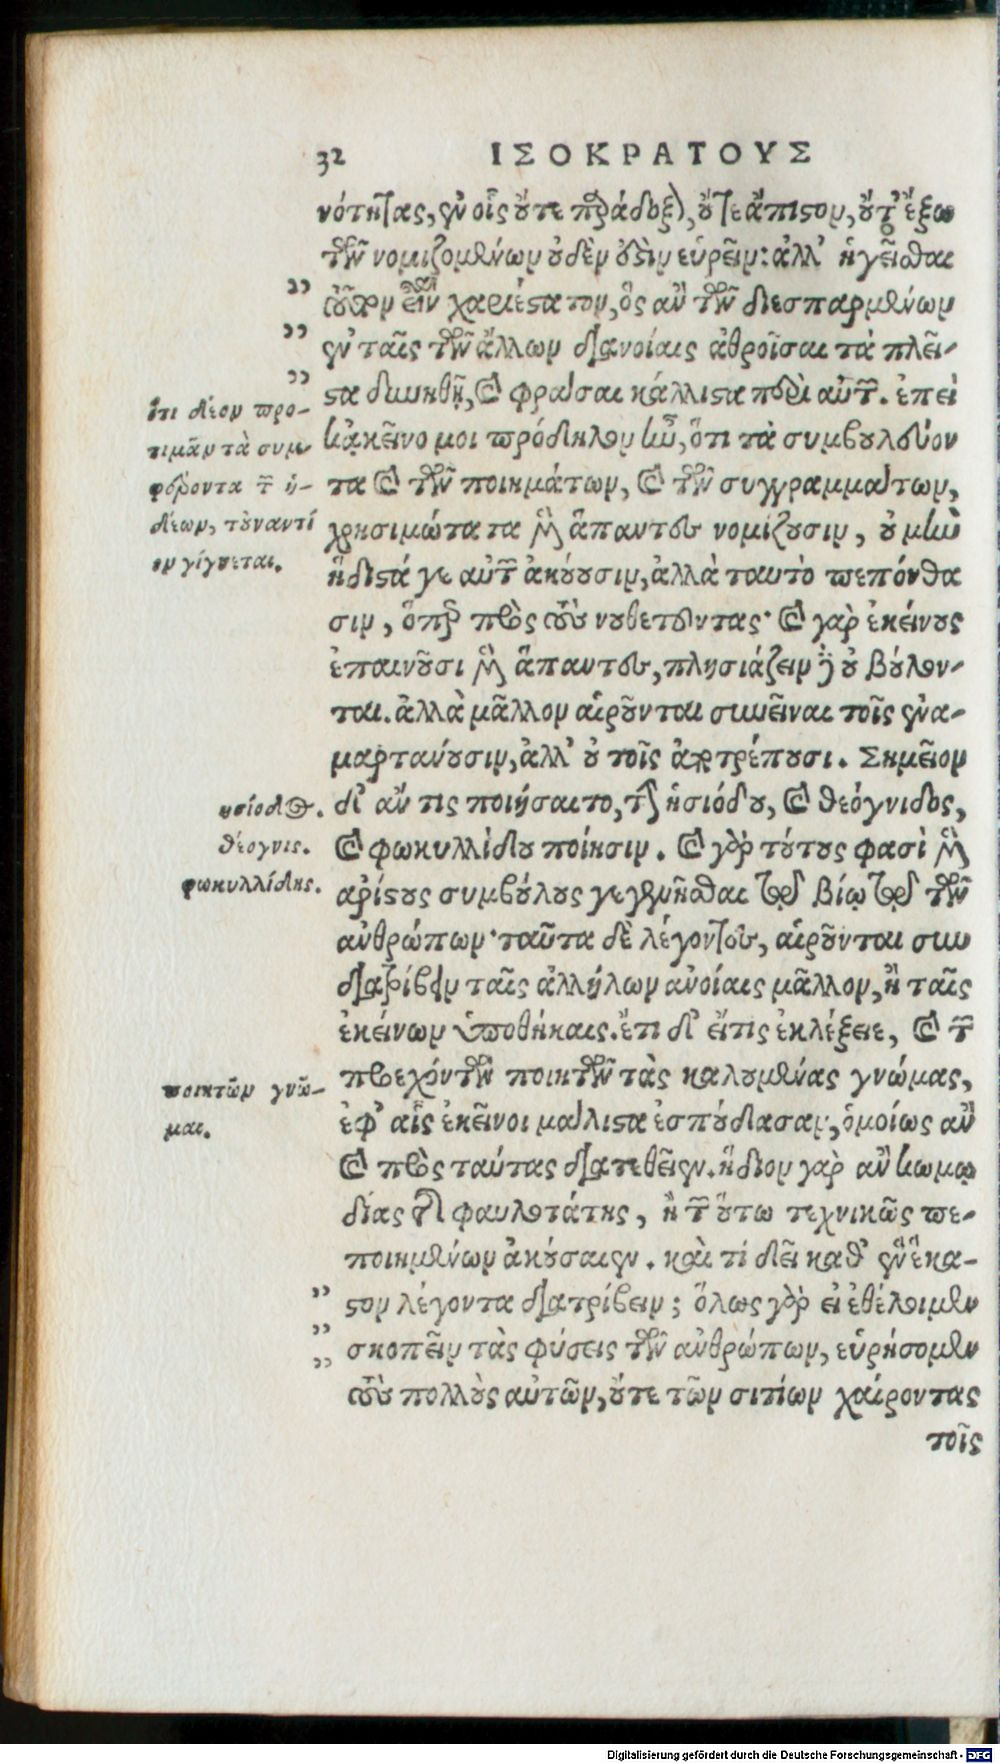 32 ΙΣΟΚΡΑΤΟΥΣ
νότητας, ἐν οἷς οὔτε παράδοξον, οὔτε ἄπιστον, οὔτ' ἔξω
τῶν νομιζομένων οὐδὲν ἔξεστιν εὑρεῖν: ἀλλ' ἡγεῖσθαι
τοῦτον εἶναι χαριέστατον, ὃς ἂν τῶν διεσπαρμένων
ἐν ταῖς τῶν ἄλλων διανοίαις ἀθροῖσαι τὰ πλεῖ-
στα δυνηθῇ, καὶ φράσαι κάλλιστα περὶ αὐτῶν. ἐπεὶ
κἀκεῖνο μοι πρόδηλον ἦν, ὅτι τὰ συμβουλεύον
τα καὶ τῶν ποιημάτων, καὶ τῶν συγγραμμάτων,
χρησιμώτατα μὲν ἅπαντες νομίζουσιν, οὐ μὴν
ἥδιστά γε αὐτῶν ἀκούουσιν, ἀλλὰ ταυτὸ πεπόνθα
σιν, ὅπερ πρὸς τοὺς νουθετοῦντας· καὶ γὰρ ἐκείνους
ἐπαινοῦσι μὲν ἅπαντες, πλησιάζειν δὲ οὐ βούλον-
ται. ἀλλὰ μᾶλλον αἱροῦνται συνεῖναι τοῖς ἐνα-
μαρτάνουσιν, ἀλλ' οὐ τοῖς ἀποτρέπουσι. Σημεῖον
δ' ἄν τις ποιήσαιτο, τὴν ἡσιόδου, καὶ θεόγνιδος,
καὶ φωκυλλίδου ποίησιν. καὶ γὰρ τούτους φασὶ μὲν
ἀρίστους συμβούλους γεγενῆσθαι τῷ βίῳ τῷ τῶν
ἀνθρώπων· ταῦτα δὲ λέγοντες, αἱροῦνται συν
διατρίβειν ταῖς ἀλλήλων ἀνοίαις μᾶλλον, ἢ ταῖς
ἐκείνων ὑποθήκαις. ἔτι δ' εἴ τις ἐκλέξειε, καὶ τῶν
προεχόντων ποιητῶν τὰς καλουμένας γνώμας,
ἐφ' αἷς ἐκεῖνοι μάλιστα ἐσπούδασαν, ὁμοίως ἂν
καὶ πρὸς ταύτας διατεθεῖεν. ἥδιον γὰρ ἂν κωμῳ
δίας τῆς φαυλοτάτης, ἢ τῶν οὕτω τεχνικῶς πε-
ποιημένων ἀκούσαιεν. καὶ τί δεῖ καθ' ἓν ἕκα-
στον λέγοντα διατρίβειν; ὅλως γὰρ εἰ ἐθέλοιμεν
σκοπεῖν τὰς φύσεις τῶν ἀνθρώπων, εὑρήσομεν
τοὺς πολλοὺς αὐτῶν, οὔτε τῶν σιτίων χαίροντας
τοῖς
ὅτι δέον προ-
τιμᾶν τὰ συμ
φέροντα τῶν ἡ-
δέων, τοὐναντί
ον γίγνεται.
ἡσίοδος.
θέογνις.
φωκυλλίδης.
ποιητῶν γνῶ-
μαι.
Digitalisierung gefördert durch die Deutsche Forschungsgemeinschaft - DFG